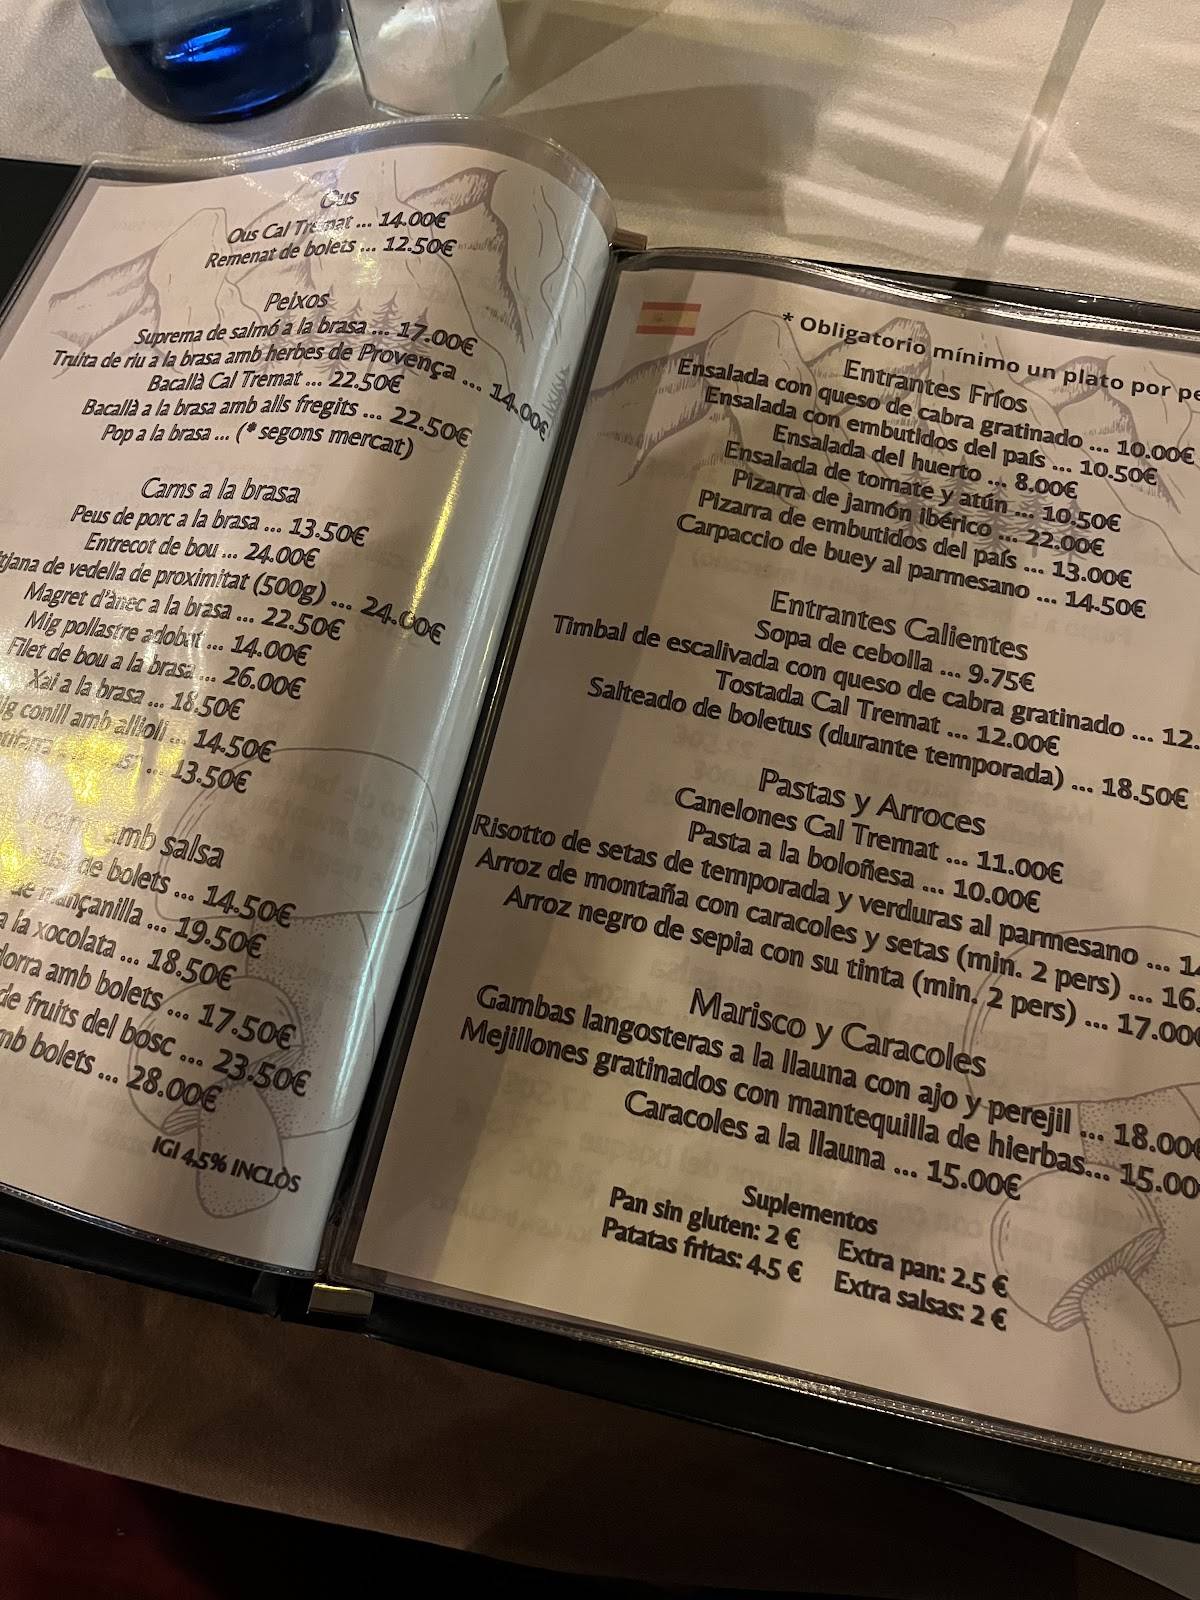 Ous
Ous Cal Tremat ... 14.00€
Remenat de bolets ... 12.50€
Peixos
Suprema de salmó a la brasa ... 17.00€
Truita de riu a la brasa amb herbes de Provença ... 14.00€
Bacallà Cal Tremat ... 22.50€
Bacallà a la brasa amb alls fregits ... 22.50€
Pop a la brasa ... (* segons mercat)
Carns a la brasa
Peus de porc a la brasa ... 13.50€
Entrecot de bou ... 24.00€
tjana de vedella de proximitat (500g) ... 24.00€
Magret d'ànec a la brasa ... 22.50€
Mig pollastre adobat ... 14.00€
Filet de bou a la brasa ... 26.00€
Xai a la brasa ... 18.50€
ig conill amb allioli ... 14.50€
... 13.50€
amb salsa
de bolets ... 14.50€
de mançanilla ... 19.50€
a la xocolata ... 18.50€
dorra amb bolets ... 17.50€
de fruits del bosc ... 23.50€
mb bolets ... 28.00€
IGI 4.5% INCLÒS
* Obligatorio mínimo un plato por pe
Entrantes Fríos
Ensalada con queso de cabra gratinado ... 10.00€
Ensalada con embutidos del país ... 10.50€
Ensalada del huerto ... 8.00€
Ensalada de tomate y atún ... 10.50€
Pizarra de jamón ibérico ... 22.00€
Pizarra de embutidos del país ... 13.00€
Carpaccio de buey al parmesano ... 14.50€
Entrantes Calientes
Sopa de cebolla ... 9.75€
Timbal de escalivada con queso de cabra gratinado ... 12.
Tostada Cal Tremat ... 12.00€
Salteado de boletus (durante temporada) ... 18.50€
Pastas y Arroces
Canelones Cal Tremat ... 11.00€
Pasta a la boloñesa ... 10.00€
Risotto de setas de temporada y verduras al parmesano ... 14
Arroz de montaña con caracoles y setas (min. 2 pers) ... 16.
Arroz negro de sepia con su tinta (min. 2 pers) ... 17.00€
Marisco y Caracoles
Gambas langosteras a la llauna con ajo y perejil ... 18.00€
Mejillones gratinados con mantequilla de hierbas... 15.00
Caracoles a la llauna ... 15.00€
Suplementos
Pan sin gluten: 2 € Extra pan: 2.5 €
Patatas fritas: 4.5 € Extra salsas: 2 €